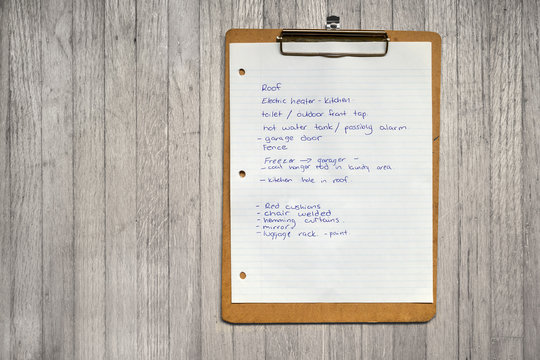 Roof
Electric heater - kitchen
toilet / outdoor front tap
hot water tank / possibly alarm
- garage door
Fence
Freezer → garager -
- coat hanger rod in laundy area
- kitchen hole in roof
- Red cushions
- chair welded
- hemming curtains
- mirror
- luggage rack - paint